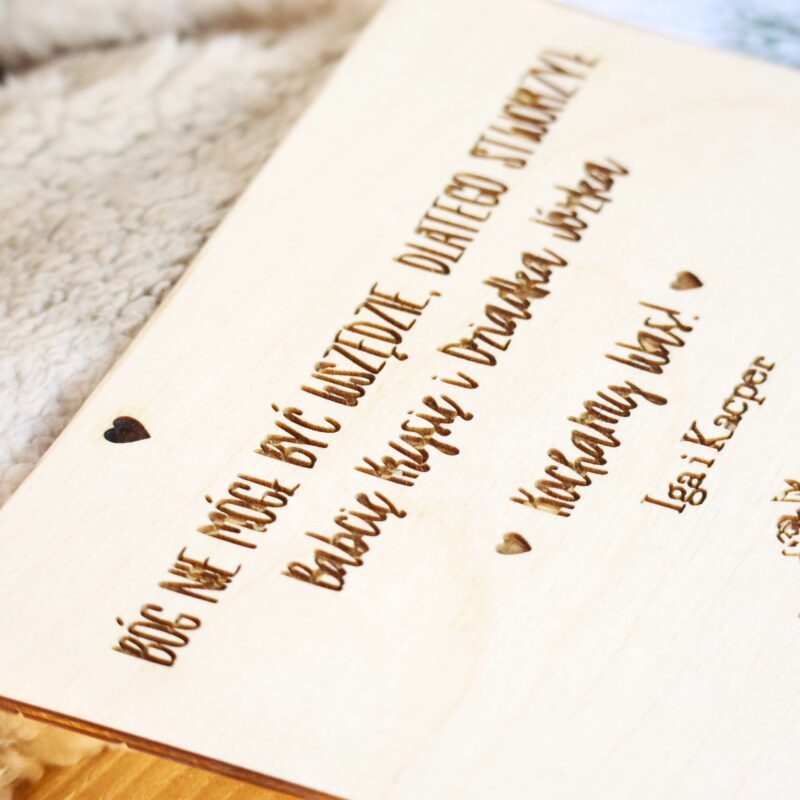 BÓG NIE MÓGŁ BYĆ WSZĘDZIE, DLATEGO STWORZYŁ
Babcię Krysię i Dziadka Józka
Kochamy Was!
Iga i Kacper